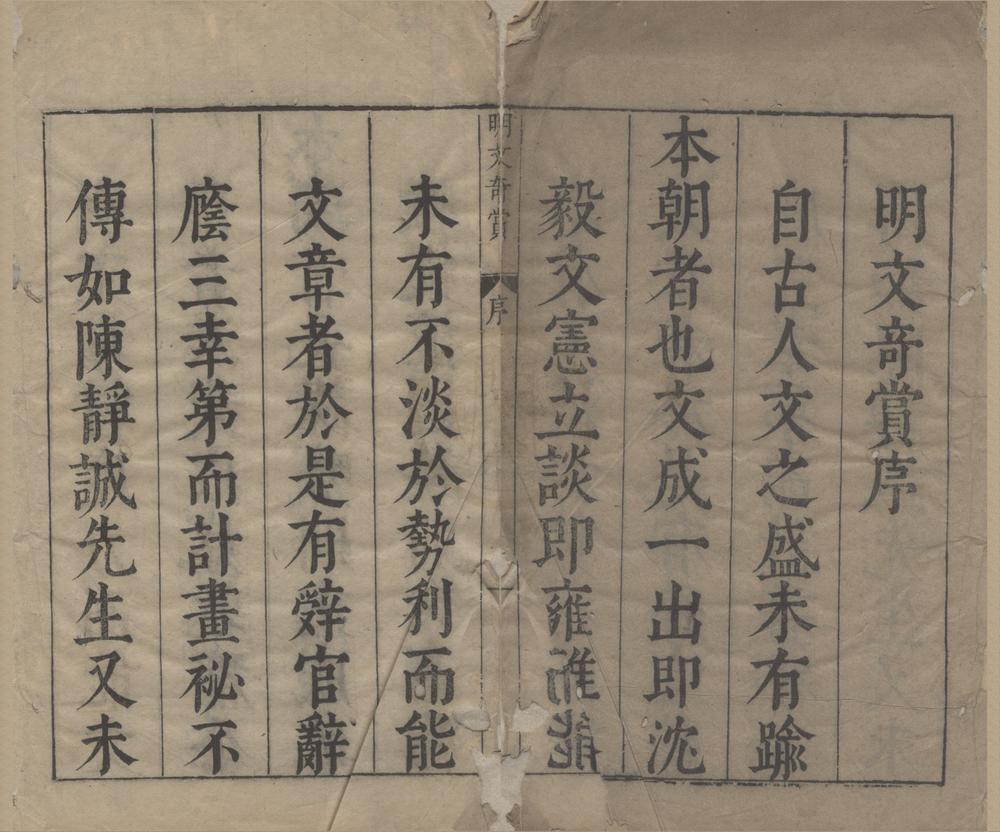 明文奇賞序
自古人文之盛未有踰
本朝者也文成一出即沈
毅文憲立談即雍
明文奇賞
序
未有不淡於勢利而能
文章者於是有辤官辭
廕三幸第而計畫祕不
傳如陳靜誠先生又未